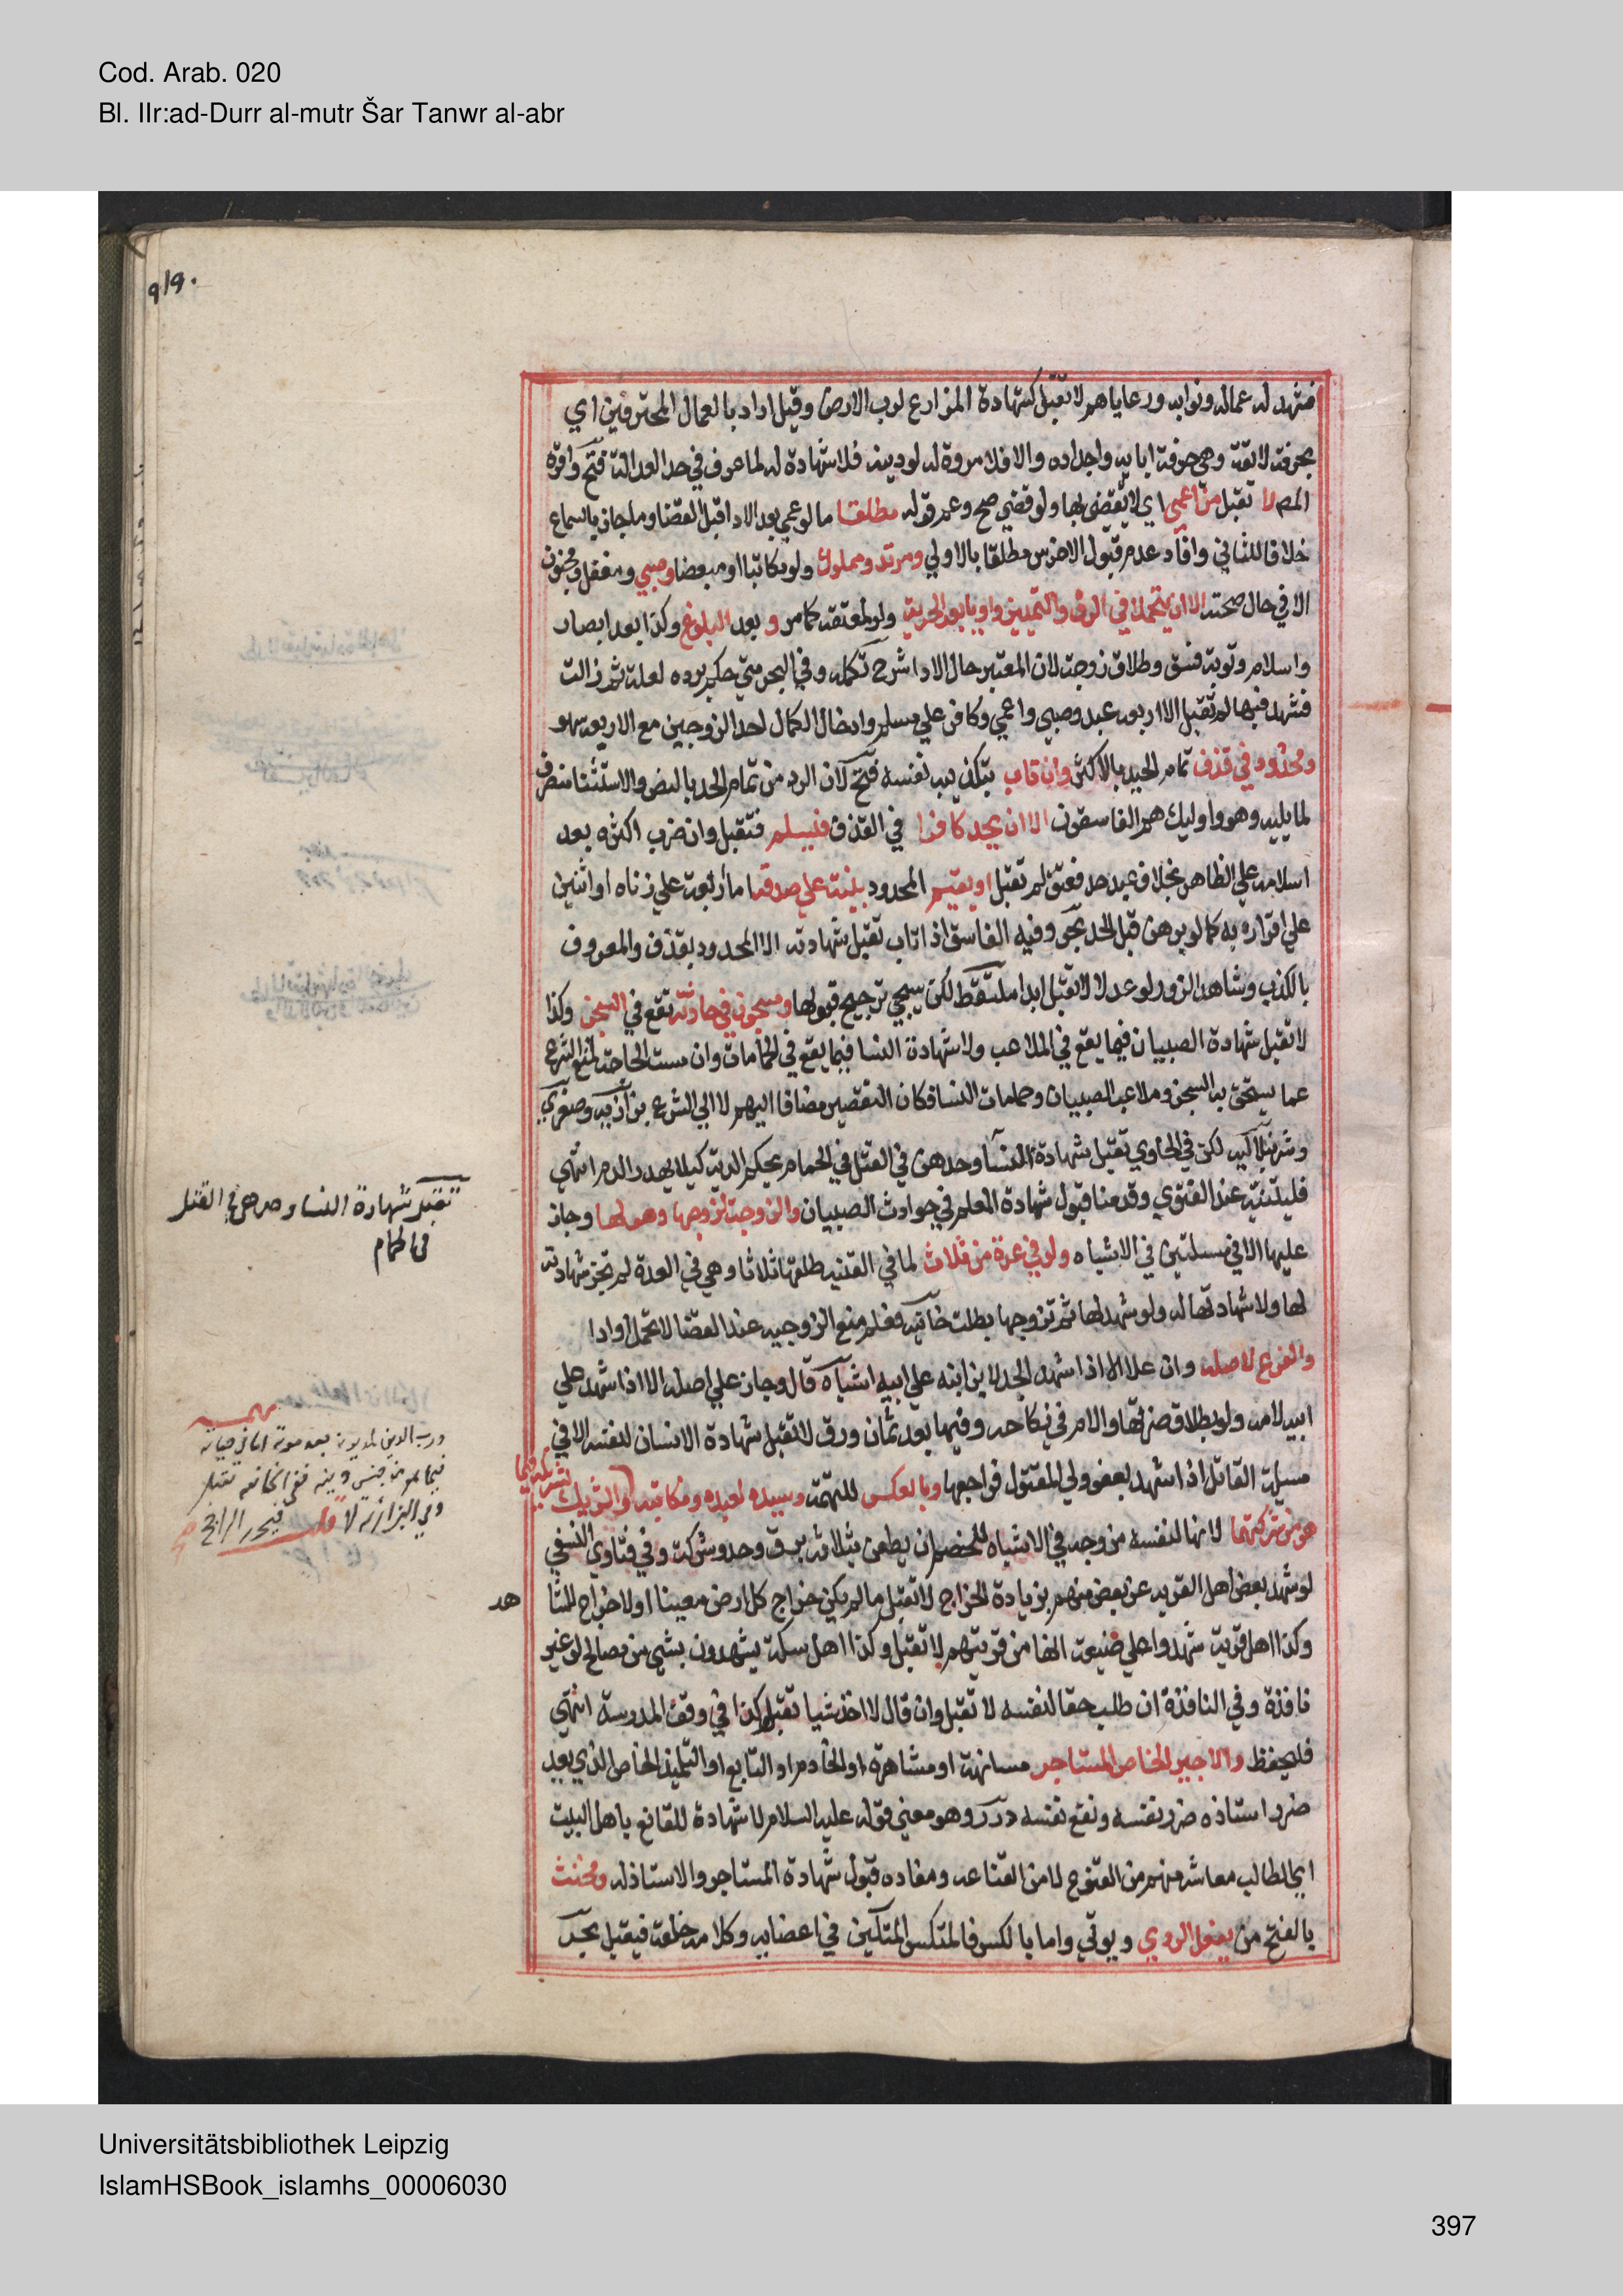 Cod. Arab. 020
Bl. IIr:ad-Durr al-mutr Šar Tanwr al-abr
فشهد له عماله ونوابه ورعاياهم لا تقبل كشهادة المزارع لرب الارض وقيل اراد بالعمال المحترفين اي
بحرفة لائقة وهي حرفة ابايه واجداده والا فلا مروة له لو دنيئة فلا شهادة له لما عرف في حد العدالة فتح واقره
المص لا تقبل من اعمى اي لا يقضى بها ولو قضي صح وعم قوله مطلقا ما لو عمي بعد الادا قبل القضا وما جاز بالسماع
خلافا للثاني وافاد عدم قبول الاخرس مطلقا بالاولي ومرتد ومملوك ولو مكاتبا او مبعضا وصبي ومغفل ومجنون
الا في حال صحته الا ان يتحملا في الرق والتمييز واديا بعد الحرية ولو لمعتقه كما مر و بعد البلوغ وكذا بعد ابصار
واسلام وتوبة فسق وطلاق زوجة لان المعتبر حال الادا شرح تكمله وفي البحر متي حكم برده لعلة ثم زالت
فشهد فيها لم تقبل الا اربعة عبد وصبي واعمي وكافر علي مسلم وادخال الكمال احد الزوجين مع الاربعة سهو
ومحدود في قذف تمام الحد بالاكثر وان تاب بتكذيبه نفسه فتح لان الرد من تمام الحد بالنص والاستثنا منصرف
لما يليه وهو واوليك هم الفاسقون الا ان يحد كافرا في القذف فيسلم فتقبل وان ضرب اكثره بعد
اسلامه علي الظاهر بخلاف عبد حد فعتق لم تقبل او يقيم المحدود بينة علي صدقه اما اربعة علي زناه او اثنين
علي اقراره به كما لو برهن قبل الحد بحر وفيه الفاسق اذا تاب تقبل شهادته الا المحدود بقذف والمعروف
بالكذب وشاهد الزور لو عدلا لا تقبل ابدا ملتقط لكن سيجي ترجيح قبولها ومسجون في حادثة تقع في السجن وكذا
لا تقبل شهادة الصبيان فيما يقع في الملاعب ولا شهادة النسا فيما يقع في الحمامات وان مست الحاجة لمنع الشرع
عما يستحق به السجن وملاعب الصبيان وحمامات النسا فكان التقصير مضافا اليهم لا الي الشرع بزازيه وصغري
وشرنبلاليه لكن في الحاوي تقبل شهادة النسا وحدهن في القتل في الحمام بحكم الدية كيلا يهدر الدم انتهي
فليتنبه عند الفتوي وقدمنا قبول شهادة المعلم في حوادث الصبيان والزوجة لزوجها وهو لها وجاز
عليها الا في مسئلتين في الاشباه ولو في عدة من ثلاث لما في القنيه طلقها ثلاثا وهي في العدة لم تجز شهادته
لها ولا شهادتها له ولو شهد لها ثم تزوجها بطلت خانيه فعلم منع الزوجيه عند القضا لا تحمل او ادا
والفرع لاصله وان علا الا اذا شهد الجد لابن ابنه علي ابيه اشباه قال وجاز علي اصله الا اذا شهد علي
ابيه لامه ولو بطلاق ضرتها والام في نكاحه وفيها بعد ثمان ورق لا تقبل شهادة الانسان لنفسه الا في
مسئلة القاتل اذا شهد بعفو ولي المقتول فراجعها وبالعكس للتهمة وسيده لعبده ومكاتبه والشريك لشريكه فيما
هو من شركتهما لانها لنفسه من وجه في الاشباه للخصم ان يطعن بثلاثة برق وحد وشركة وفي فتاوي النسفي
لو شهد بعض اهل القريه عن بعض منهم بزيادة الخراج لا تقبل ما لم يكن خراج كل ارض معينا او لا خراج للشا
هد
وكذا اهل قرية شهدوا علي ضيعة انها من قريتهم لا تقبل وكذا اهل سكة يشهدون بشي من مصالحه لو غير
نافذة وفي النافذة ان طلب حقا لنفسه لا تقبل وان قال لا اخذ شيا تقبل وكذا في وقف المدرسة انتهي
فليحفظ والاجير الخاص لمستاجره مسانهة او مشاهرة او الخادم او التابع او التلميذ الخاص الذي يعد
ضرر استاذه ضرر نفسه ونفع نفسه درر وهو معني قوله عليه السلام لا شهادة للقانع باهل البيت
اي الطالب معاشه منهم من القنوع لا من القناعه ومفاده قبول شهادة المستاجر والاستاذ له ومخنث
بالفتح من يفعل الردي ويوتي واما بالكسر فالمتكسر المتلين في اعضايه وكلامه خلقة فيقبل بحر
تقبل شهادة النسا وحدهن في القتل
في الحمام
مهمه
ورب الدين لمديونه بعد موته اما في حياته
Universitätsbibliothek Leipzig
IslamHSBook_islamhs_00006030
397